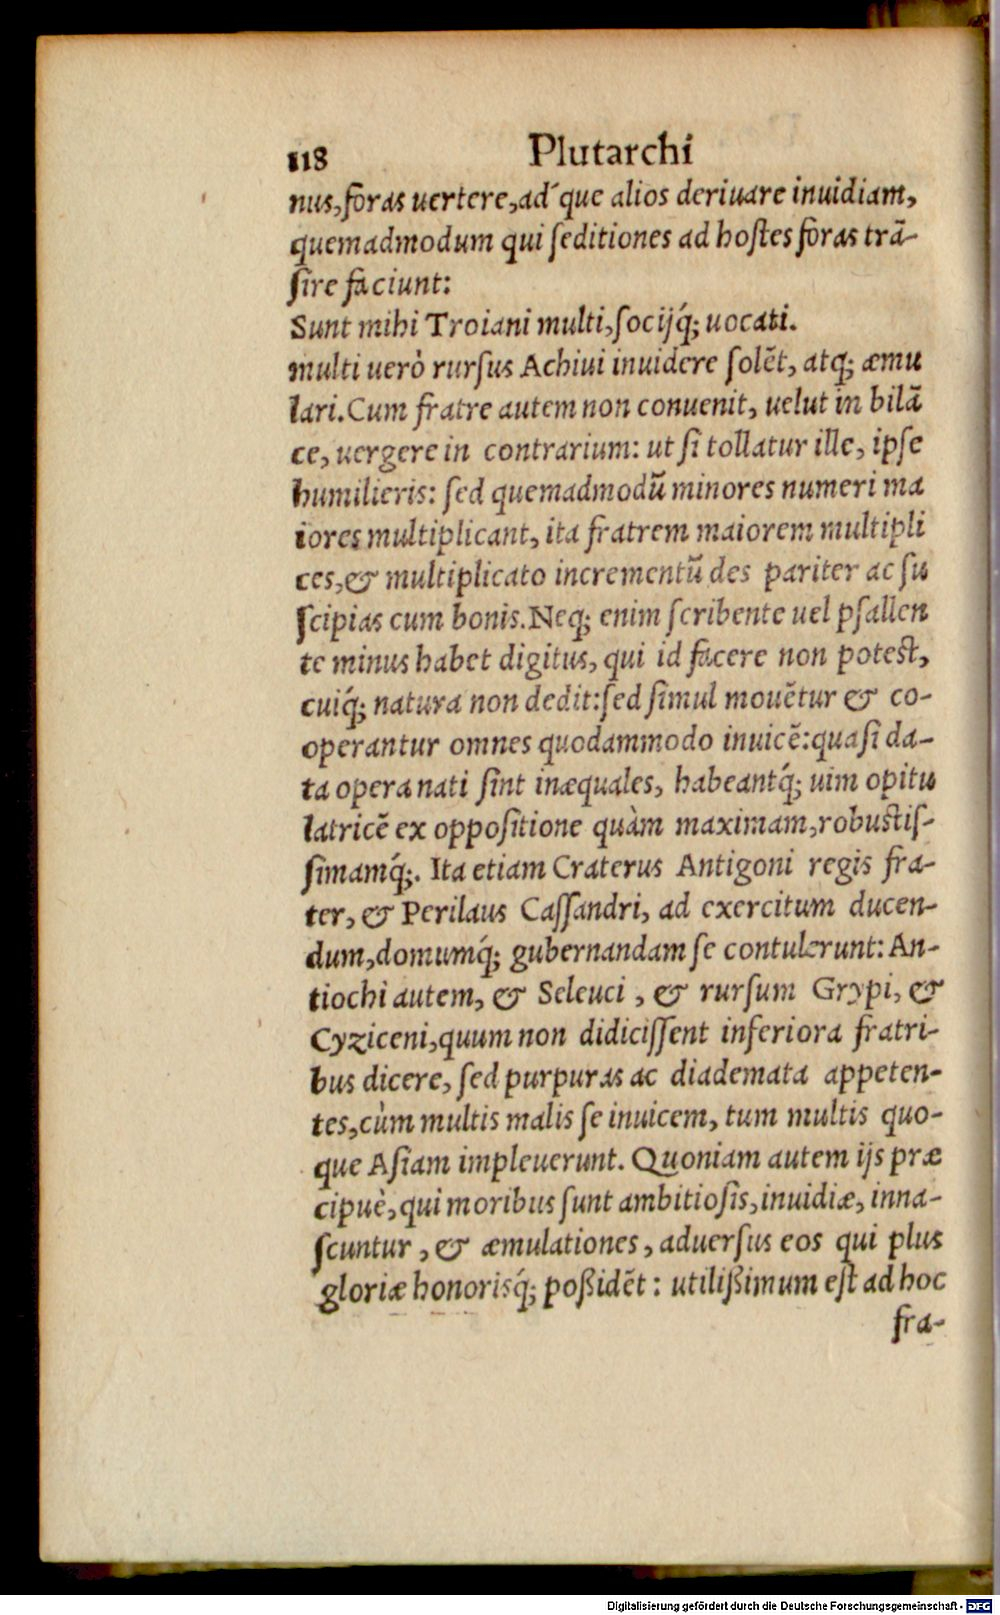 118 Plutarchi
nus,foras uertere,ad´que alios deriuare inuidiam,
quemadmodum qui ſeditiones ad hoſtes foras trã-
ſire faciunt:
Sunt mihi Troiani multi,ſocijq́; uocati.
multi uerò rurſus Achiui inuidere ſolẽt, atq; æmu
lari.Cum fratre autem non conuenit, uelut in bilã
ce, uergere in contrarium: ut ſi tollatur ille, ipſe
humilieris: ſed quemadmodũ minores numeri ma
iores multiplicant, ita fratrem maiorem multipli
ces,& multiplicato incrementũ des pariter ac ſu
ſcipias cum bonis.Neq; enim ſcribente uel pſallen
te minus habet digitus, qui id facere non poteſt,
cuiq́; natura non dedit:ſed ſimul mouẽtur & co-
operantur omnes quodammodo inuicẽ:quaſi da-
ta opera nati ſint inæquales, habeantq́; uim opitu
latricẽ ex oppoſitione quàm maximam,robuſtiſ-
ſimamq́;. Ita etiam Craterus Antigoni regis fra-
ter, & Perilaus Caſſandri, ad exercitum ducen-
dum,domumq́; gubernandam ſe contulerunt: An-
tiochi autem, & Seleuci , & rurſum Grypi, &
Cyziceni,quum non didiciſſent inferiora fratri-
bus dicere, ſed purpuras ac diademata appeten-
tes,cùm multis malis ſe inuicem, tum multis quo-
que Aſiam impleuerunt. Quoniam autem ijs præ
cipuè,qui moribus ſunt ambitioſis,inuidiæ, inna-
ſcuntur , & æmulationes , aduerſus eos qui plus
gloriæ honorisq́; poßidẽt : utilißimum eſt ad hoc
fra-
Digitalisierung gefördert durch die Deutsche Forschungsgemeinschaft - DFG